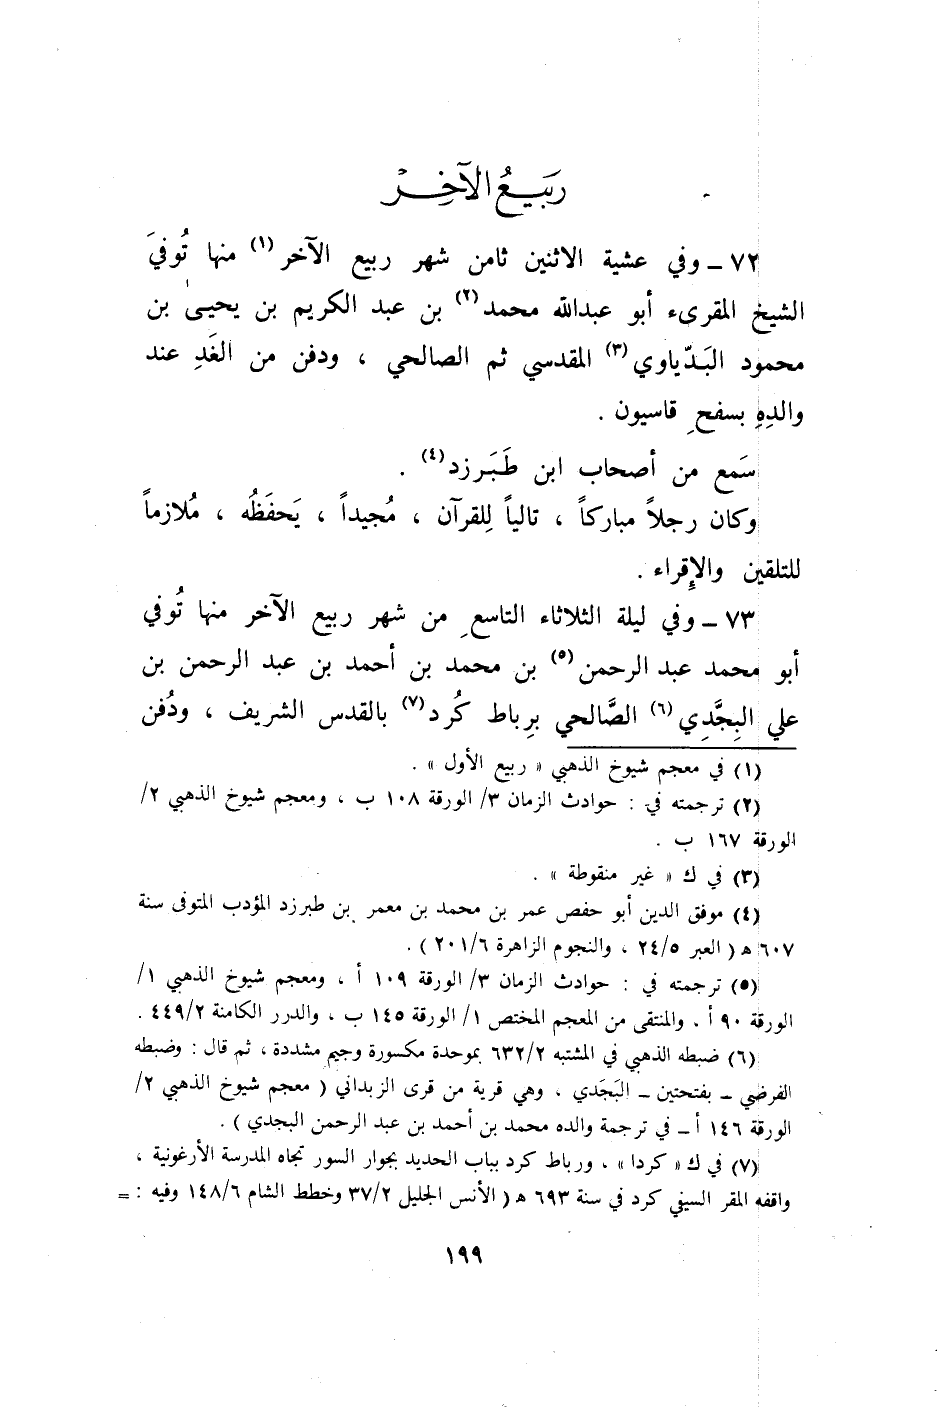 رَبيعُ الآخِرْ
٧٢ ـ وفي عشية الاثنين ثامن شهر ربيع الآخر (١) منها تُوفيَ
الشيخ المقرىء أبو عبدالله محمد (٢) بن عبد الكريم بن يحيى بن
محمود البَدّياوي (٣) المقدسي ثم الصالحي ، ودفن من الغَدِ عند
والدِهِ بسفحِ قاسيون .
سَمع من أصحاب ابن طَبَرزد (٤) .
وكان رجلاً مباركاً ، تالياً لِلقرآن ، مُجيداً ، يَحفَظُه ، مُلازماً
للتلقين والإِقراء .
٧٣ ـ وفي ليلة الثلاثاء التاسعِ من شهر ربيع الآخر منها تُوفي
أبو محمد عبد الرحمن (٥) بن محمد بن أحمد بن عبد الرحمن بن
علي البِجَّدِي (٦) الصَّالحي بِرِباط كُرد (٧) بالقدس الشريف ، ودُفن
(١) في معجم شيوخ الذهبي « ربيع الأول » .
(٢) ترجمته في : حوادث الزمان ٣/ الورقة ١٠٨ ب ، ومعجم شيوخ الذهبي ٢/
الورقة ١٦٧ ب .
(٣) في ك « غير منقوطة » .
(٤) موفق الدين أبو حفص عمر بن محمد بن معمر بن طبرزد المؤدب المتوفى سنة
٦٠٧ هـ ( العبر ٢٤/٥ ، والنجوم الزاهرة ٢٠١/٦ ) .
(٥) ترجمته في : حوادث الزمان ٣/ الورقة ١٠٩ أ ، ومعجم شيوخ الذهبي ١/
الورقة ٩٠ أ ، والمنتقى من المعجم المختص ١/ الورقة ١٤٥ ب ، والدرر الكامنة ٤٤٩/٢ .
(٦) ضبطه الذهبي في المشتبه ٦٣٢/٢ بموحدة مكسورة وجيم مشددة ، ثم قال : وضبطه
الفرضي ـ بفتحتين ـ البَجَدي ، وهي قرية من قرى الزبداني ( معجم شيوخ الذهبي ٢/
الورقة ١٤٦ أ ـ في ترجمة والده محمد بن أحمد بن عبد الرحمن البجدي ) .
(٧) في ك « كردا » ، ورباط كرد بباب الحديد بجوار السور تجاه المدرسة الأرغونية ،
واقفه المقر السيفي كرد في سنة ٦٩٣ هـ ( الأنس الجليل ٣٧/٢ وخطط الشام ١٤٨/٦ وفيه : =
١٩٩